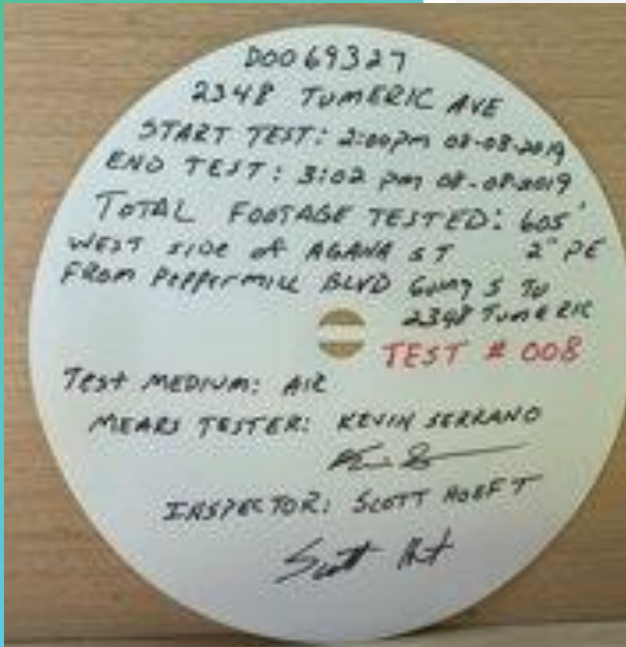 D0069327
2348 TUMERIC AVE
START TEST: 2:00pm 08-08-2019
END TEST: 3:02 pm 08-08-2019
TOTAL FOOTAGE TESTED: 605'
WEST SIDE of AGANA ST 2" PE
FROM PEPPERMILL BLVD Going S TO
2348 TUMERIC
TEST # 008
TEST MEDIUM: AIR
MEARS TESTER: KEVIN SERRANO
INSPECTOR: SCOTT HOEFT